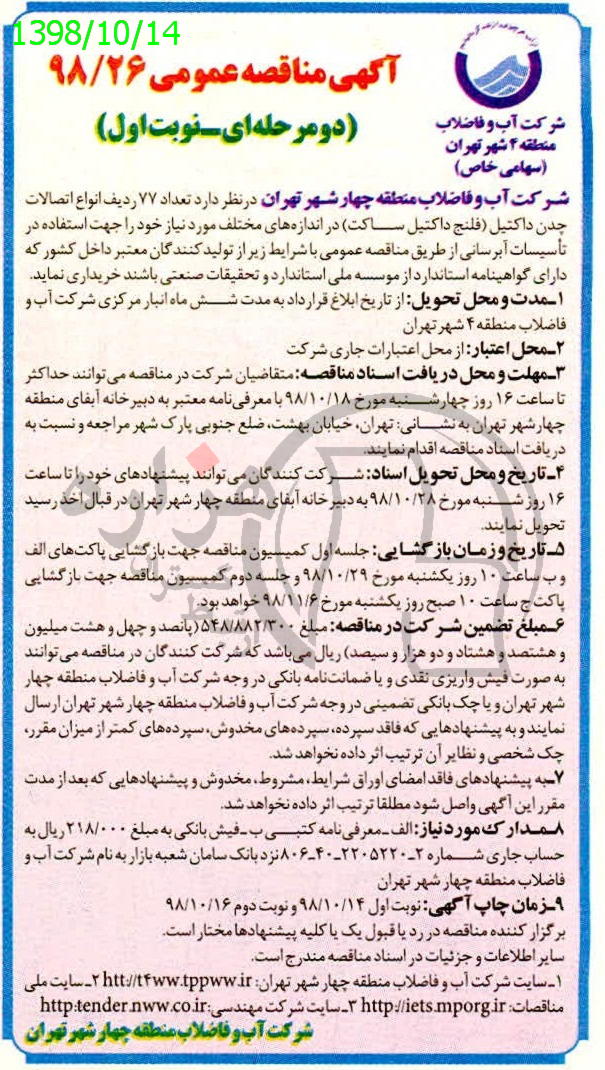 1398/10/14
آگهی مناقصه عمومی ۹۸/۲۶
(دو مرحله‌ای ـ نوبت اول)
شرکت آب و فاضلاب
منطقه ۴ شهر تهران
(سهامی خاص)
شرکت آب و فاضلاب منطقه چهار شهر تهران در نظر دارد تعداد ۷۷ ردیف انواع اتصالات
چدن داکتیل (فلنج داکتیل ساکت) در اندازه‌های مختلف مورد نیاز خود را جهت استفاده در
تأسیسات آبرسانی از طریق مناقصه عمومی با شرایط زیر از تولیدکنندگان معتبر داخل کشور که
دارای گواهینامه استاندارد از موسسه ملی استاندارد و تحقیقات صنعتی باشند خریداری نماید.
۱ـ مدت و محل تحویل: از تاریخ ابلاغ قرارداد به مدت شش ماه انبار مرکزی شرکت آب و
فاضلاب منطقه ۴ شهر تهران
۲ـ محل اعتبار: از محل اعتبارات جاری شرکت
۳ـ مهلت و محل دریافت اسناد مناقصه: متقاضیان شرکت در مناقصه می‌توانند حداکثر
تا ساعت ۱۶ روز چهارشنبه مورخ ۹۸/۱۰/۱۸ با معرفی‌نامه معتبر به دبیرخانه آبفای منطقه
چهار شهر تهران به نشانی: تهران، خیابان بهشت، ضلع جنوبی پارک شهر مراجعه و نسبت به
دریافت اسناد مناقصه اقدام نمایند.
۴ـ تاریخ و محل تحویل اسناد: شرکت کنندگان می‌توانند پیشنهادهای خود را تا ساعت
۱۶ روز شنبه مورخ ۹۸/۱۰/۲۸ به دبیرخانه آبفای منطقه چهار شهر تهران در قبال اخذ رسید
تحویل نمایند.
۵ـ تاریخ و زمان بازگشایی: جلسه اول کمیسیون مناقصه جهت بازگشایی پاکت‌های الف
و ب ساعت ۱۰ روز یکشنبه مورخ ۹۸/۱۰/۲۹ و جلسه دوم کمیسیون مناقصه جهت بازگشایی
پاکت ج ساعت ۱۰ صبح روز یکشنبه مورخ ۹۸/۱۱/۶ خواهد بود.
۶ـ مبلغ تضمین شرکت در مناقصه: مبلغ ۵۴۸/۸۸۲/۳۰۰ (پانصد و چهل و هشت میلیون
و هشتصد و هشتاد و دو هزار و سیصد) ریال می‌باشد که شرکت کنندگان در مناقصه می‌توانند
به صورت فیش واریزی نقدی و یا ضمانت‌نامه بانکی در وجه شرکت آب و فاضلاب منطقه چهار
شهر تهران و یا چک بانکی تضمینی در وجه شرکت آب و فاضلاب منطقه چهار شهر تهران ارسال
نمایند و به پیشنهادهایی که فاقد سپرده، سپرده‌های مخدوش، سپرده‌های کمتر از میزان مقرر،
چک شخصی و نظایر آن ترتیب اثر داده نخواهد شد.
۷ـ به پیشنهادهای فاقد امضای اوراق شرایط، مشروط، مخدوش و پیشنهادهایی که بعد از مدت
مقرر این آگهی واصل شود مطلقا ترتیب اثر داده نخواهد شد.
۸ـ مدارک مورد نیاز: الف ـ معرفی‌نامه کتبی ب ـ فیش بانکی به مبلغ ۲۱۸/۰۰۰ ریال به
حساب جاری شماره ۲ـ۲۲۰۵۲۲۰ـ۴۰ـ۸۰۶ نزد بانک سامان شعبه بازار به نام شرکت آب و
فاضلاب منطقه چهار شهر تهران
۹ـ زمان چاپ آگهی: نوبت اول ۹۸/۱۰/۱۴ و نوبت دوم ۹۸/۱۰/۱۶
برگزار کننده مناقصه در رد یا قبول یک یا کلیه پیشنهادها مختار است.
سایر اطلاعات و جزئیات در اسناد مناقصه مندرج است.
۱ـ سایت شرکت آب و فاضلاب منطقه چهار شهر تهران: htt://t4ww.tppww.ir ۲ـ سایت ملی
مناقصات: http://iets.mporg.ir ۳ـ سایت شرکت مهندسی: http:tender.nww.co.ir
شرکت آب و فاضلاب منطقه چهار شهر تهران